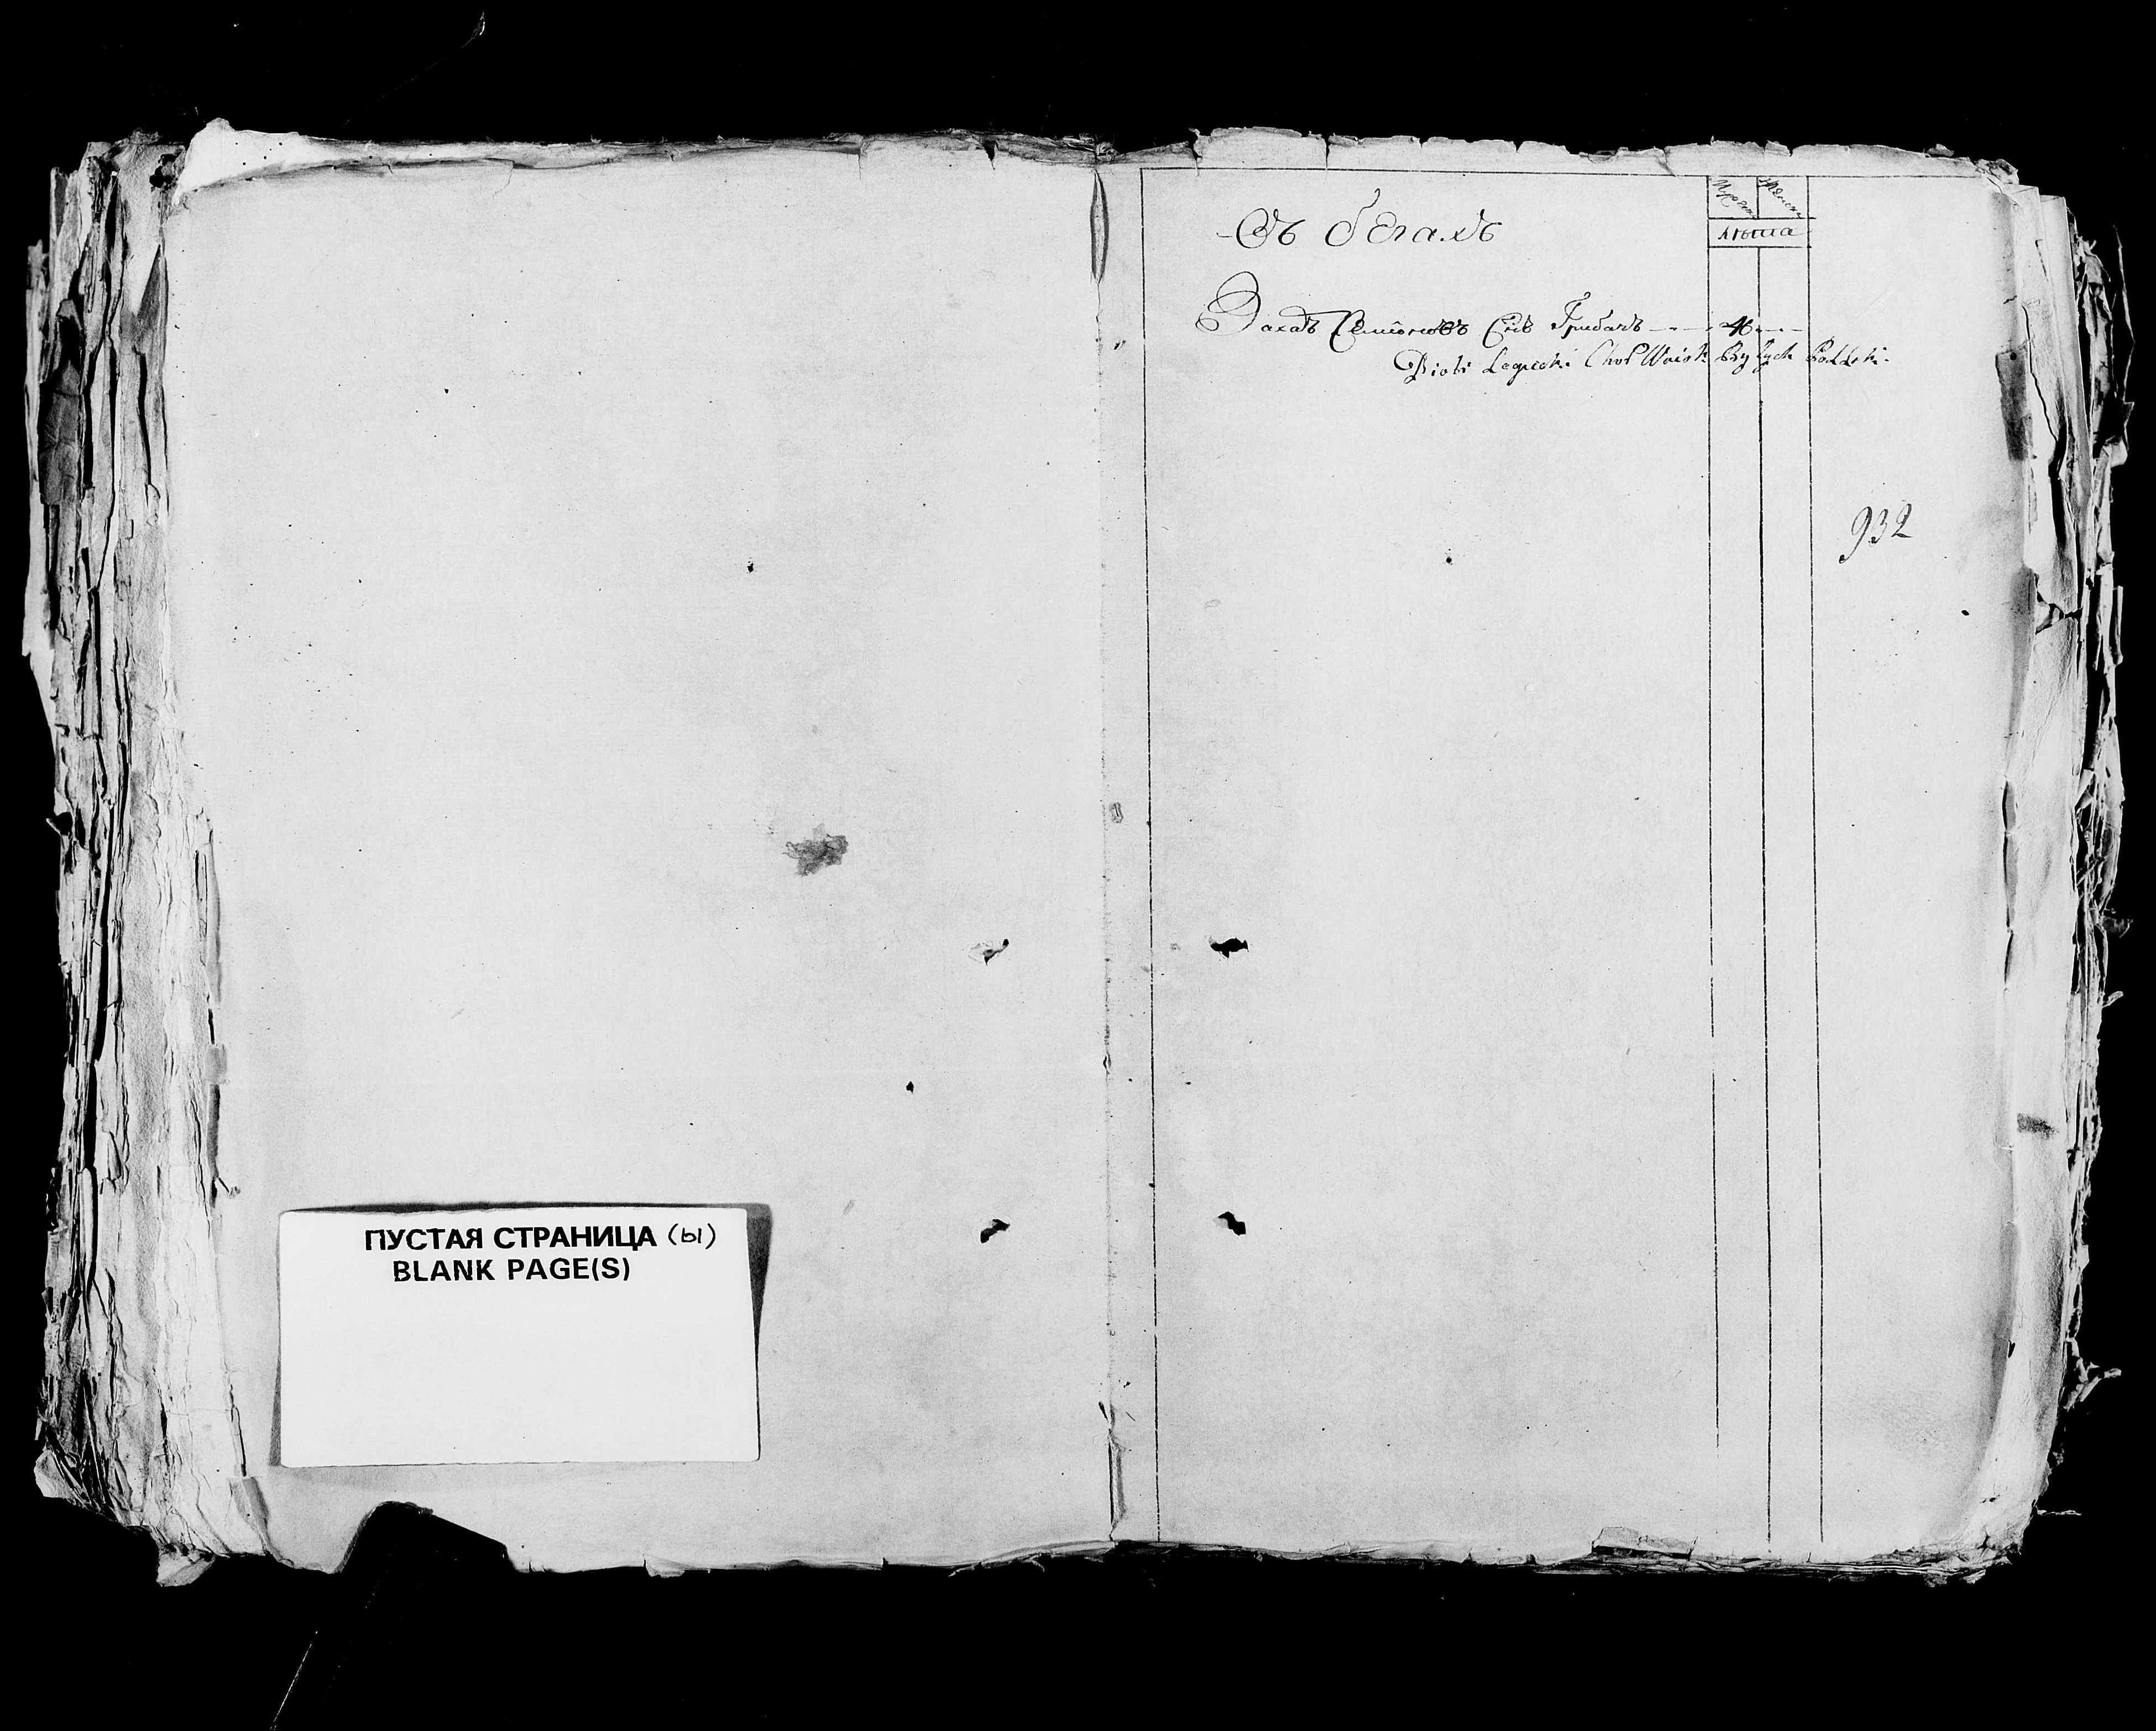 ПУСТАЯ СТРАНИЦА (ы)
BLANK PAGE(S)
Въ бегахъ
Мужеск Женск
лѣта
Захаръ Семіоновъ Сынъ Грибачъ 40
Piotr Legecki Chor Woisk By łych Polski
932